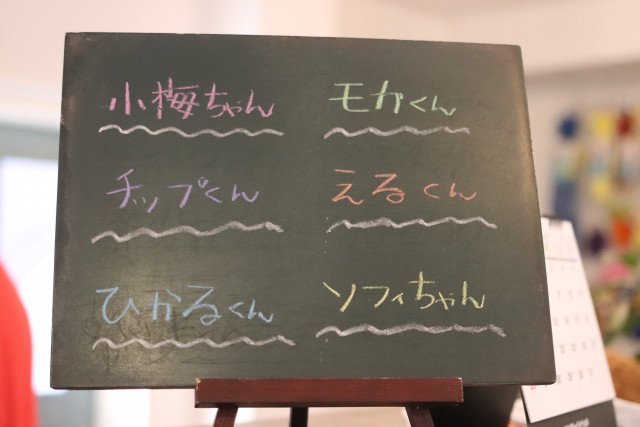 小梅ちゃん
モカくん
チップくん
えるくん
ひかるくん
ソフィちゃん